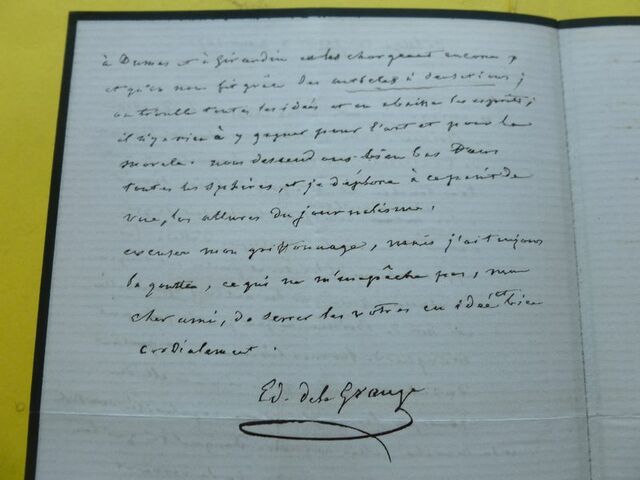 à Dumas et à Girardin en les chargeant encore,
et qu'on nous fit grâce des articles à sensations ;
on trouble toutes les idées et on abaisse les esprits ;
il n'y a rien à y gagner pour l'art et pour la
morale. nous descendons bien bas dans
toutes les sphères, et je déplore à ce point de
vue, les allures du journalisme.
excusez mon griffonnage, mais j'ai toujours
la goutte, ce qui ne m'empêche pas, mon
cher ami, de serrer les vôtres en idée et bien
cordialement.
Ed. de la Grange